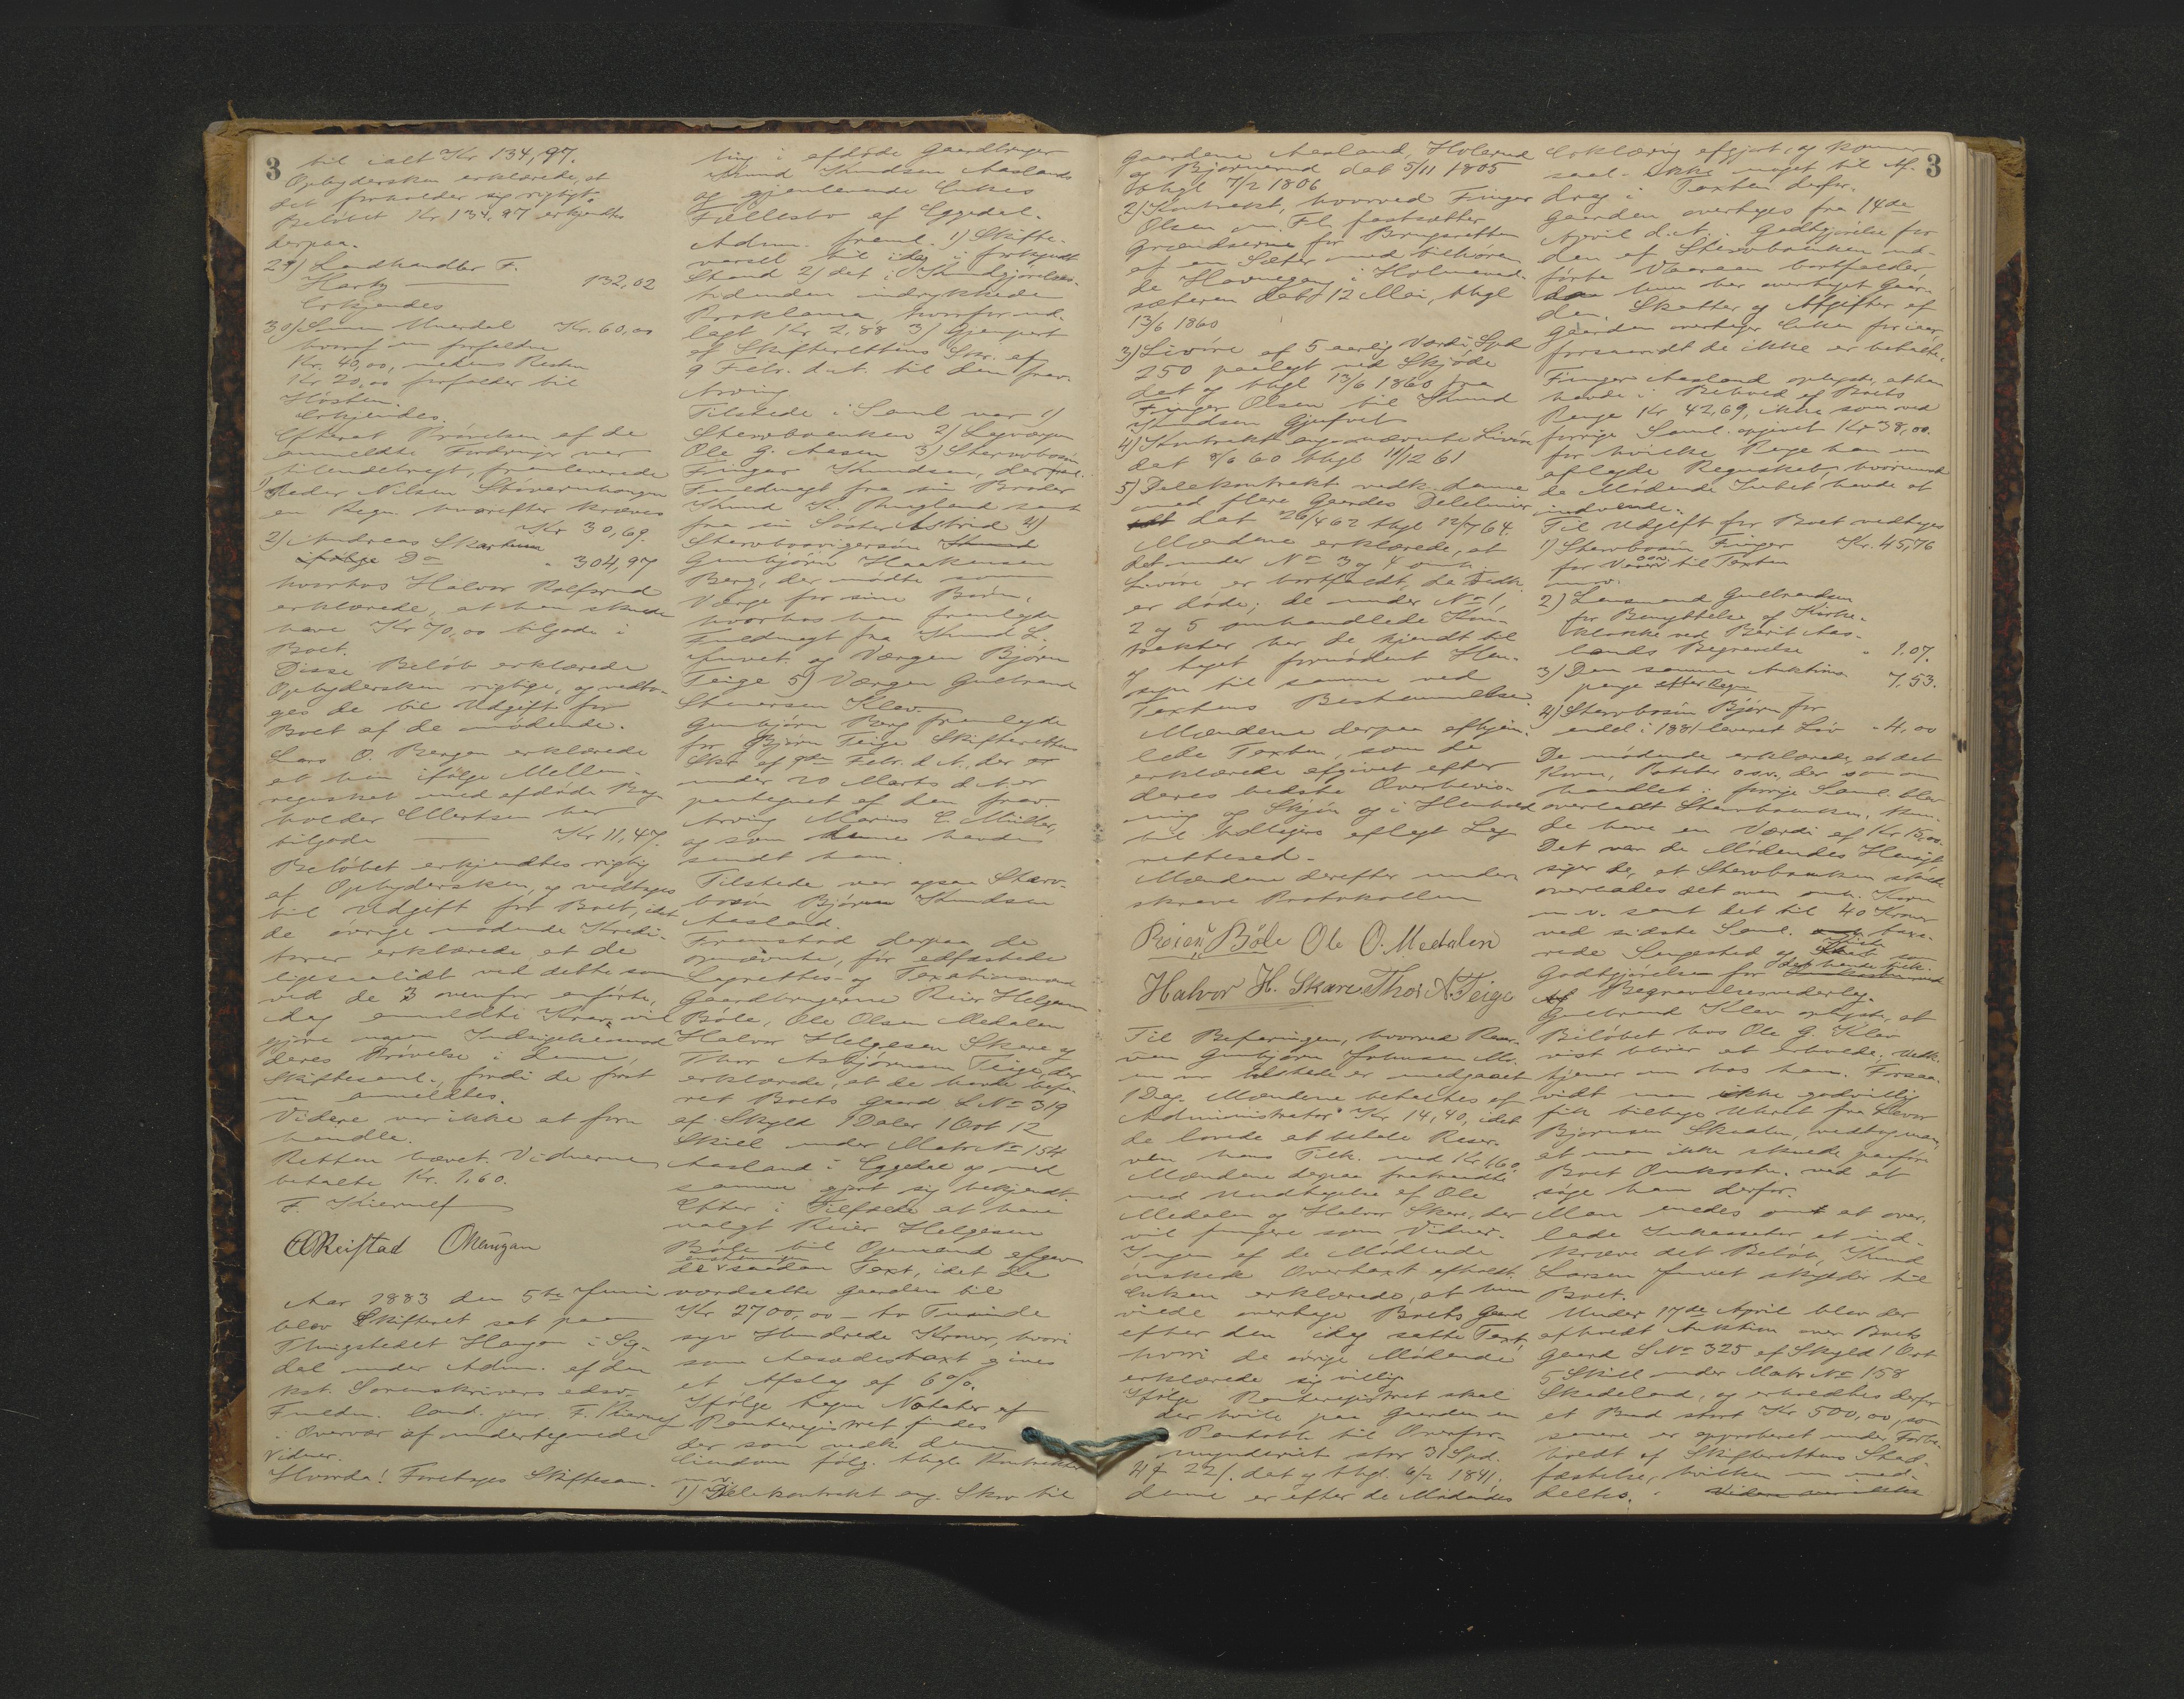 3
til ialt Kr 134,97.
Opbydersken erklærede, at
det forholder sig rigtigt.
Beløbet Kr 134,97 erkjendtes
derpaa.
29) Landhandler F.
Harby 132,02
Erkjendes
30) Simen Unerdal Kr. 60,00
hvoraf en forfalden
Kr. 40,00, medens Resten
Kr. 20,00 forfalder til
Høsten.
Erkjendes.
Efterat Prøvelsen af de
anmeldte Fordringer var
tilendebragt, fremleverede
1) Peder Nilsen
en Regn. hvorefter kræves
Kr 30,69.
2) Andreas Skartum
ifølge Do " 304,97
hvorhos Halvor Rolfsrud
erklærede, at han skulde
have Kr 70,00 tilgode i
Boet.
Disse Beløb erklærede
Opbydersken rigtige, og vedto-
ges de til Udgift for
Boet af de mødende.
Lars O. Bergan erklærede
at han ifølge Mellem-
regnskab med afdøde Bog-
holder Ellertsen har
tilgode Kr 11,47.
Beløbet erkjendtes rigtig
af Opbydersken, og vedtoges
til Udgift for Boet, idet
de øvrige mødende Kredi-
torer erklærede, at de
ligesaalidt ved dette som
ved de 3 ovenfor anførte,
idag anmeldte Krav, vil
gjøre nogen Indsigelse mod
deres Prøvelse i denne
Skiftesaml., fordi de først
nu anmeldtes.
Videre var ikke at forre-
handle.
Retten hævet. Vidnerne
betalte Kr. 1,60.
F. Kierulf
Reistad OHaugan
Aar 1883 den 5te Juni
blev Skifteret sat paa
Thingstedet Haugan i Sig-
dal under Adm. af den
kst. Sorenskrivers edsv.
Fuldm. cand. jur F. Kierulf
i Overvær af undertegnede
Vidner.
Hvorda! Foretoges Skiftesam-
ling i afdøde Gaardbruger
Knud Knudsen Aaslands
og gjenlevende Enkes
Fællesbo af Eggedal.
Adm. freml. 1) Skifte-
varsel til idag i forkyndt
Stand 2) det i Kundgjørelses-
tidenden indrykkede
Proklama, hvorfor ud-
lagt Kr 2,88 3) Gjenpart
af Skifterettens Skr. af
9 Febr. d.A. til den frav.
Arving
Tilstede i Saml var 1)
Stervboenken 2) Lagværgen
Ole G. Aasen 3) Stervbosøn
Finger Knudsen, der freml.
Fuldmagt fra sin Broder
Knud K. Ruglund samt
fra sin Søster Astrid 4)
Stervbosvigersøn
Gunbjørn Haakensen
Berg, der mødte som
Værge for sine Børn,
hvorhos han fremlagde
Fuldmagt fra Knud L.
Juvet og Værgen Bjørn
Teige 5) Værgen Gulbrand
Stenersen Kløv.
Gunbjørn Berg fremlagde
for Bjørn Teige Skifterettens
Skr af 9de Febr. d.A. der er
under 20 Marts d.A. er
paategnet af den frav.
Arving Marius C. Müller,
og som denne havde
sendt ham.
Tilstede var ogsaa Sterv-
bosøn Bjørn Knudsen
Aasland.
Fremstod derpaa de
opnævnte, før edfæstede
Lagrettes- og Taxationsmænd
Gaardbrugerne Reier Helgesen
Bøle, Ole Olsen Medalen
Halvor Helgesen Skare og
Thor Asbjørnsen Teige, der
erklærede, at de havde befa-
ret Boets Gaard L No 319
af Skyld 1 Daler 1 Ort 12
Skill under Matr No 154
Aasland i Eggedal og med
samme gjort sig bekjendt.
Efter i Tilfælde at have
valgt Reier Helgesen
Bøle til Opmand afgav
enstemmigen
de saadan Taxt, idet de
værdsatte Gaarden til
Kr 2700,00 – to Tusinde
syv Hundrede Kroner, hvori
som Aasædestaxt gives
et Afslag af 6 %.
Ifølge tagne Notater af
Panteregistret findes
der som vedk. denne
Eiendom følg. thgl. Kontrakter
m. v.
1) Delekontrakt ang. Skov til
3
Gaardene Aasland, Holerud
og Bjørnerud dat 5/11 1805
thgl 7/2 1806
2) Kontrakt, hvorved Finger
Olsen m. Fl fastsætter
Grændserne for Brugsretten
af en Sæter med tilhøren-
de Havnegang i Holmerud-
sæteren dat 12 Mai, thgl
13/6 1860
3) Livøre af 5 aarlig Værdi Spd
250 paalagt ved Skjøde
dat og thgl 13/6 1860 fra
Finger Olsen til Knud
Knudsen Gjufvet
4) Kontrakt ang. nævnte Livøre
dat 8/6 60 thgl 11/12 61
5) Delekontrakt vedk. denne
med flere Gaardes Delelinier
dat 26/4 62 thgl 12/7 64.
Mændene erklærede, at
det under No 3 og 4 omh.
Livøre er bortfaldt, da Vedk.
er døde; de under No 1,
2 og 5 omhandlede Kon-
trakter har de kjendt til
og taget fornødent Hen-
syn til samme ved
Taxtens Bestemmelse.
Mændene derpaa afhjem-
lede Taxten, som de
erklærede afgivet efter
deres bedste Overbevis-
ning og Skjøn og i Henhold
til tidligere aflagt Lag-
rettesed.
Mændene derefter under-
skrev Protokollen
Reier Bøle Ole O. Medalen
Halvor H. Skare Thor A. Teige
Til Befaringen, hvorved Reser-
ven Gunbjørn
var tilstede er medgaaet
1 Dag. Mændene betaltes af
Administrator Kr 14,40, idet
de lovede at betale Reser-
ven hans Tilk. med Kr 1,60.
Mændene derpaa fratraadte
med Undtagelse af Ole
Medalen og Halvor Skare, der
vil fungere som Vidner.
Ingen af de Mødende
ønskede Overtaxt afholdt.
Enken erklærede, at hun
vilde overtage Boets Gaard
efter den idag satte Taxt,
hvori de øvrige Mødende
erklærede sig villig.
Ifølge Panteregistret skal
der hvile paa Gaarden en
Pantobl. til Overfor-
mynderiet stor 31 Spd.
4 # 22 /. dat og thgl. 6/2 1841.
denne er efter de Mødendes
3
Erklæring afgjort, og kommer
saal. ikke noget til Af-
drag i Taxten derfor.
Gaarden overtages fra 14de
April d.A. Godtgjørelse for
den af Stervboenken ud-
førte Vaaraan bortfalder,
hun har overtaget Gaar-
den. Skatter og Afgifter af
Gaarden overtager Enken for iaar,
forsaavidt de ikke er betalte.
Finger Aasland oplyste, at han
havde i Behold af Boets
Penge Kr 42,69, ikke som ved
forrige Saml. opgivet Kr 38,00.
for hvilke Penge han nu
aflagde Regnskab, hvorimod
de Mødende Intet havde at
indvende.
Til Udgift for Boet vedtoges
1) Stervbosøn Finger Kr. 45,76
for Vaaraan til Taxten
m. v.
2) Lensmand Gulbrandsen
for Benyttelse af Kirke-
klokke ved Berit Aas-
lands Begravelse " 1.07.
3) Den samme Auktions-
penge efter Regn 7,53.
4) Stervbosøn Bjørn for
endel i 1881 leveret Løv - 4,00
De mødende erklærede, at det
Korn, Poteter o.s.v., der som om-
handlet i forrige Saml. blev
overladt Stervboenken, kun-
de have en Værdi af Kr 15,00.
Det var de Mødendes Hensigt,
siger de, at Stervboenken skulde
overlades det oven omh. Korn
m.v. samt det til 40 Kroner
ved sidste Saml. taxe-
rede Sengested og Kiste som
Godtgjørelse for det hende tilk.
Begravelsesvederlag.
Gulbrand Kløv oplyste, at
Beløbet hos Ole G. Kløv
vist bliver at erholde; Vedk.
tjener nu hos ham. Forsaa-
vidt man ikke godvillig
fik tilbage Uhret fra Halvor
Bjørnsen Skaalen, vedtog man,
at man ikke skulde paaføre
Boet Omkostn. ved at
søge ham derfor.
Man enedes om at over-
lade Inkassator, at ind-
kræve det Beløb, Knud
Larsen Juvet skylder til
Boet.
Under 17de April blev der
afholdt Auktion over Boets
Gaard L No 325 af Skyld 1 Ort
5 Skill under Matr No 158
Skadeland, og erholdtes derfor
et Bud stort Kr 500,00, som
senere er approberet under Forbe-
hold af Skifterettens Stad-
fæstelse, hvilken nu med-
deltes. Videre var ikke